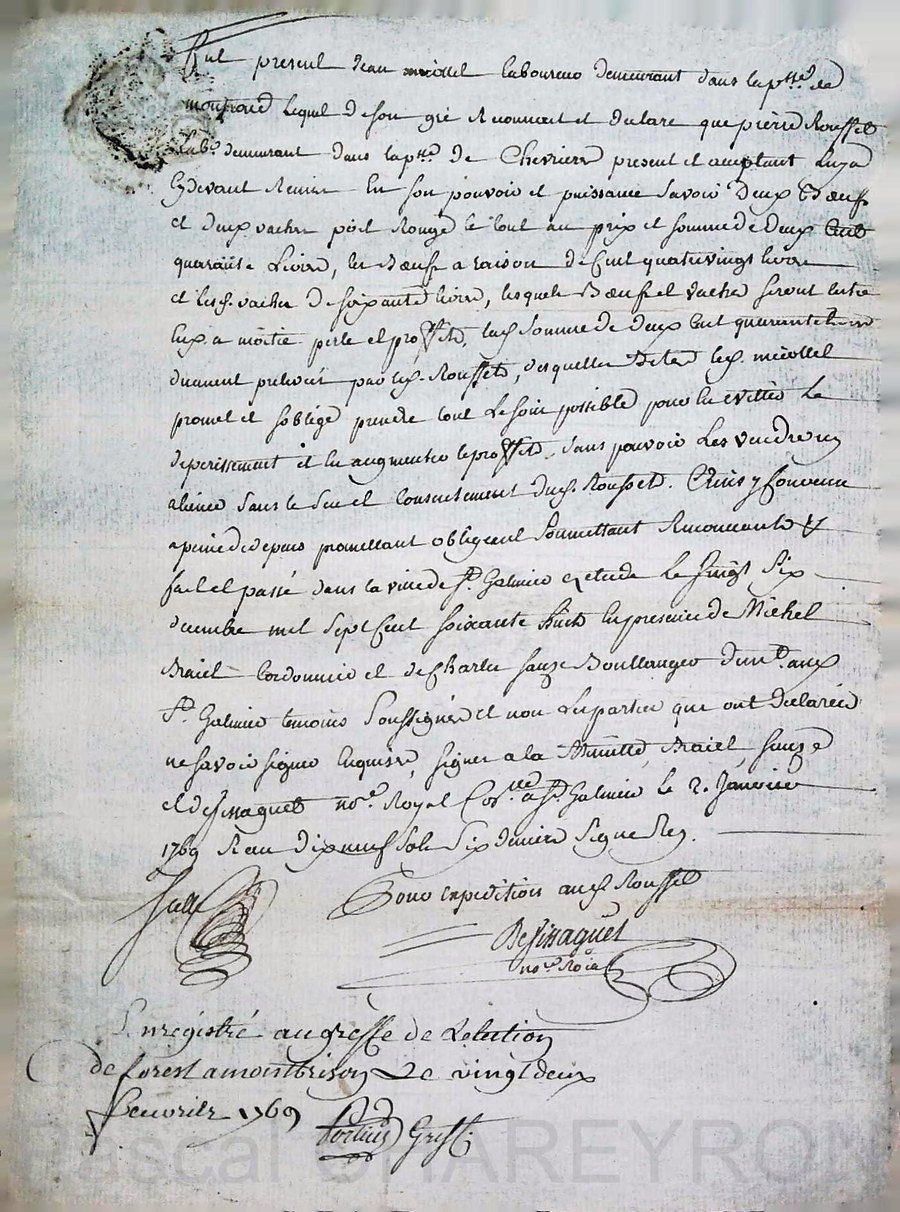 Fut present Jean miollet laboureur demeurant dans la psse. de
montrond lequel de son gré Reconnoit et declare que pierre Rousset
Labr. demeurant dans la psse. de Chevrieres present et acceptant luy a
cydevant Remis en son pouvoir et puissance Savoir Deux Bœufs
et deux vaches poil Rouge le tout au prix et somme de deux Cent
quarante Livres, les Bœufs a raison de Cent quatrevingts livres
et lesd. vaches de soixante livres, lesquels Bœufs et vaches seront entre
eux a moitié perte et proffits, lad. somme de deux Cent quarante livres
prelevée par led. Rousset, desquelles Betes led. miollet
promet et soblige prendre tout Le soin possible pour en eviter Le
deperissement et en augmenter le proffits, sans pouvoir Les vendre ny
aliener Sans le Seu et Consentement dud. Rousset. Ainsy Convenu
a peine de depens promettant obligeant Soumettant Renonceant &
fait et passé dans la ville de St. Galmier etude Le Vingt Six
decembre mil Sept Cent Soixante huit En presence de Michel
Braiet Cordonnier et de Charles Sauze Boullanger demts. aux
St. Galmier temoins Soussignés et non Les parties qui ont declarées
ne Savoir signer Enquises, signes a la Minutte, Braiet, Sauze
et deSinaguet nore. Royal Conle. a St. Galmier le 2. Janvier
1769 Reçu dix neuf Sols Six deniers Signe Rey.
Pour expedition aud. Rousset
DeSinaguet
nore. Roial
Enregistré au greffe de Lelection
de forest a montbrison Le vingt deux
feuvrier 1769
Greff.
Pascal CHAREYRON